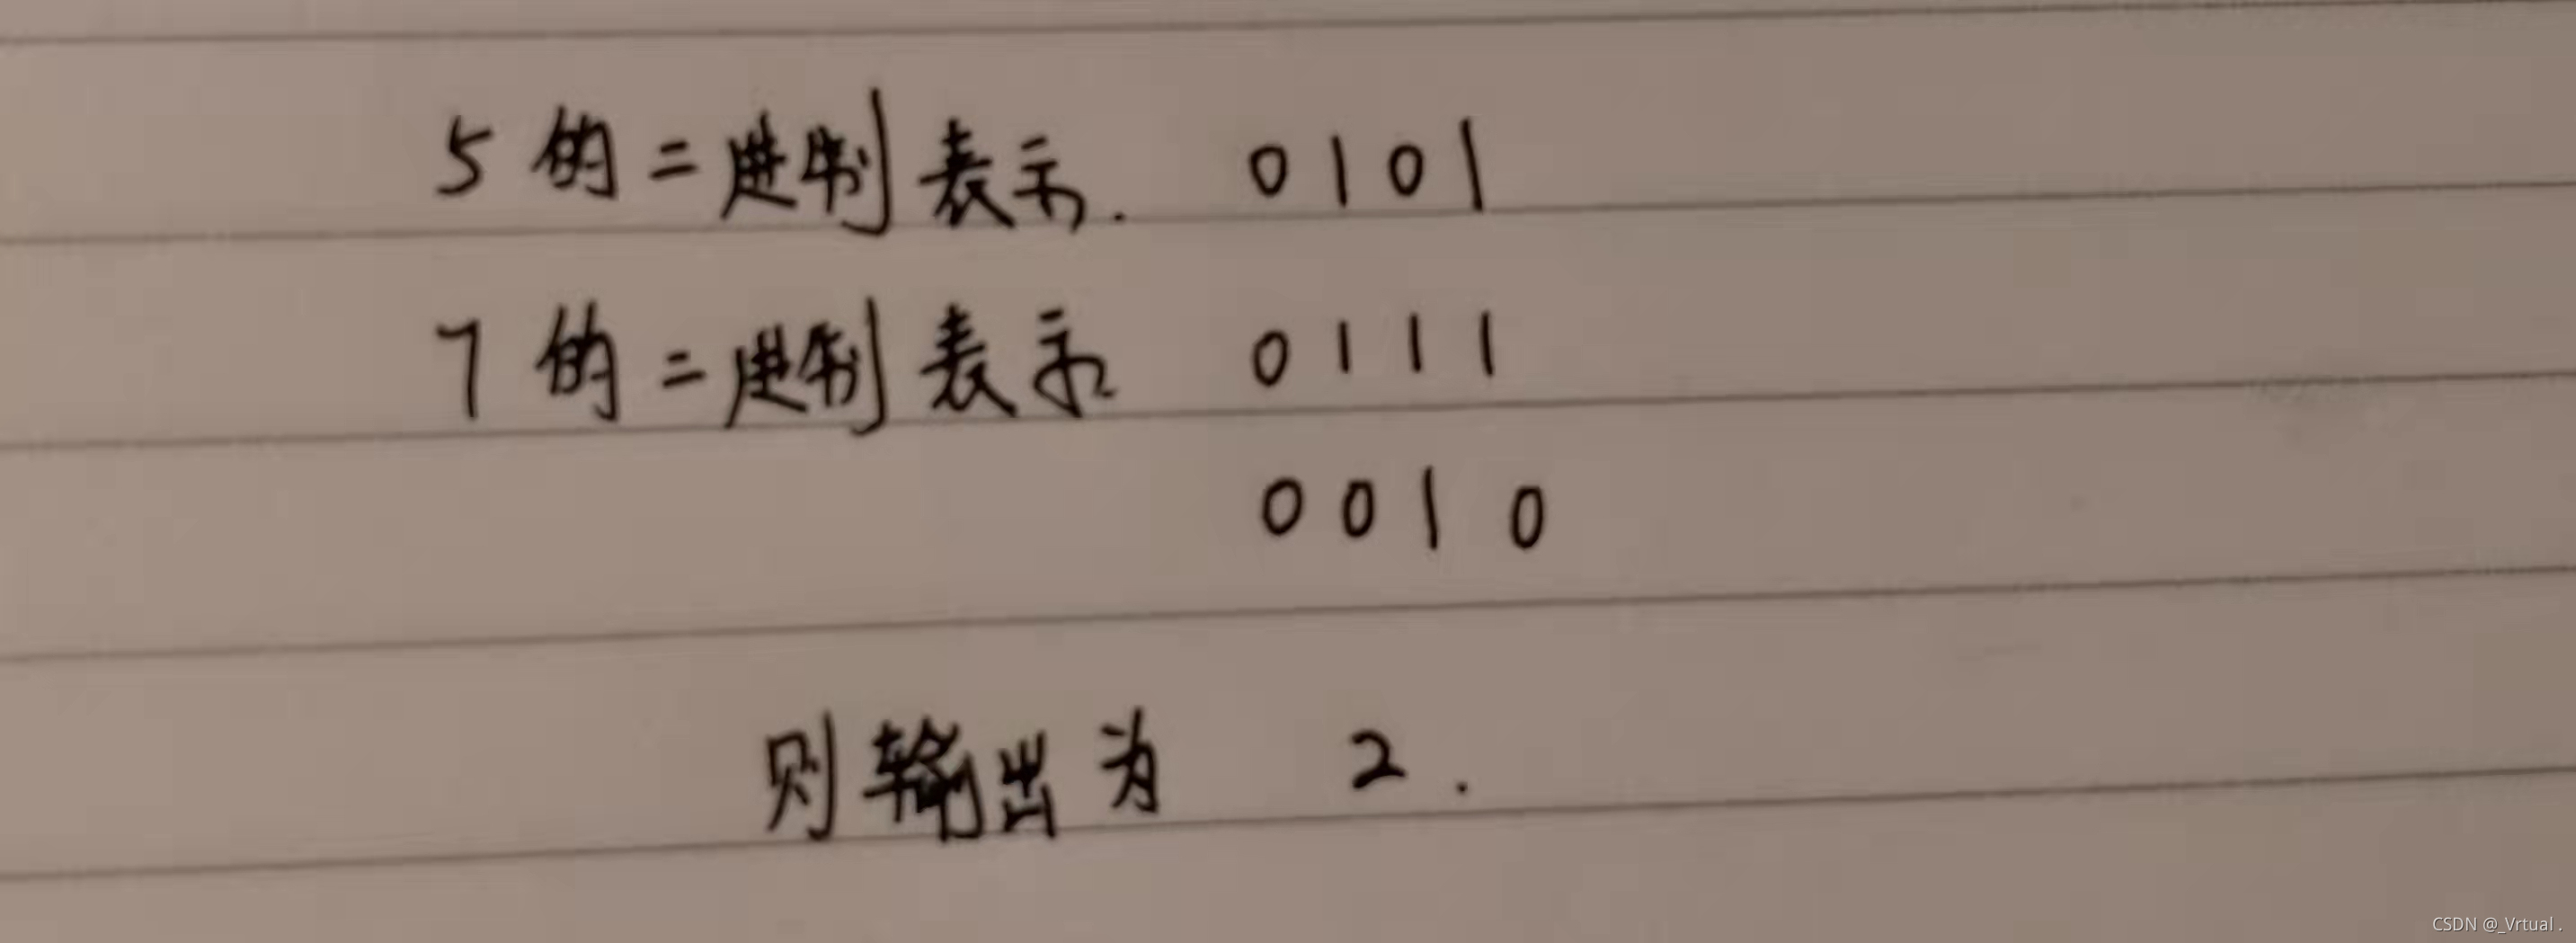 5的二进制表示. 0101
7的二进制表示 0111
0010
则输出为 2.
CSDN @_Vrtual .